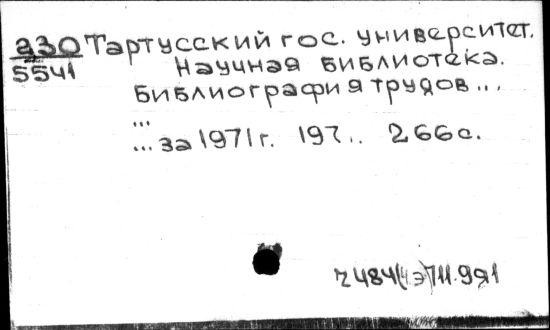 230 Тартусский гос. университет.
5541 Научная библиотека.
Библиография трудов...
...
...за 1971 г. 197.. 266 с.